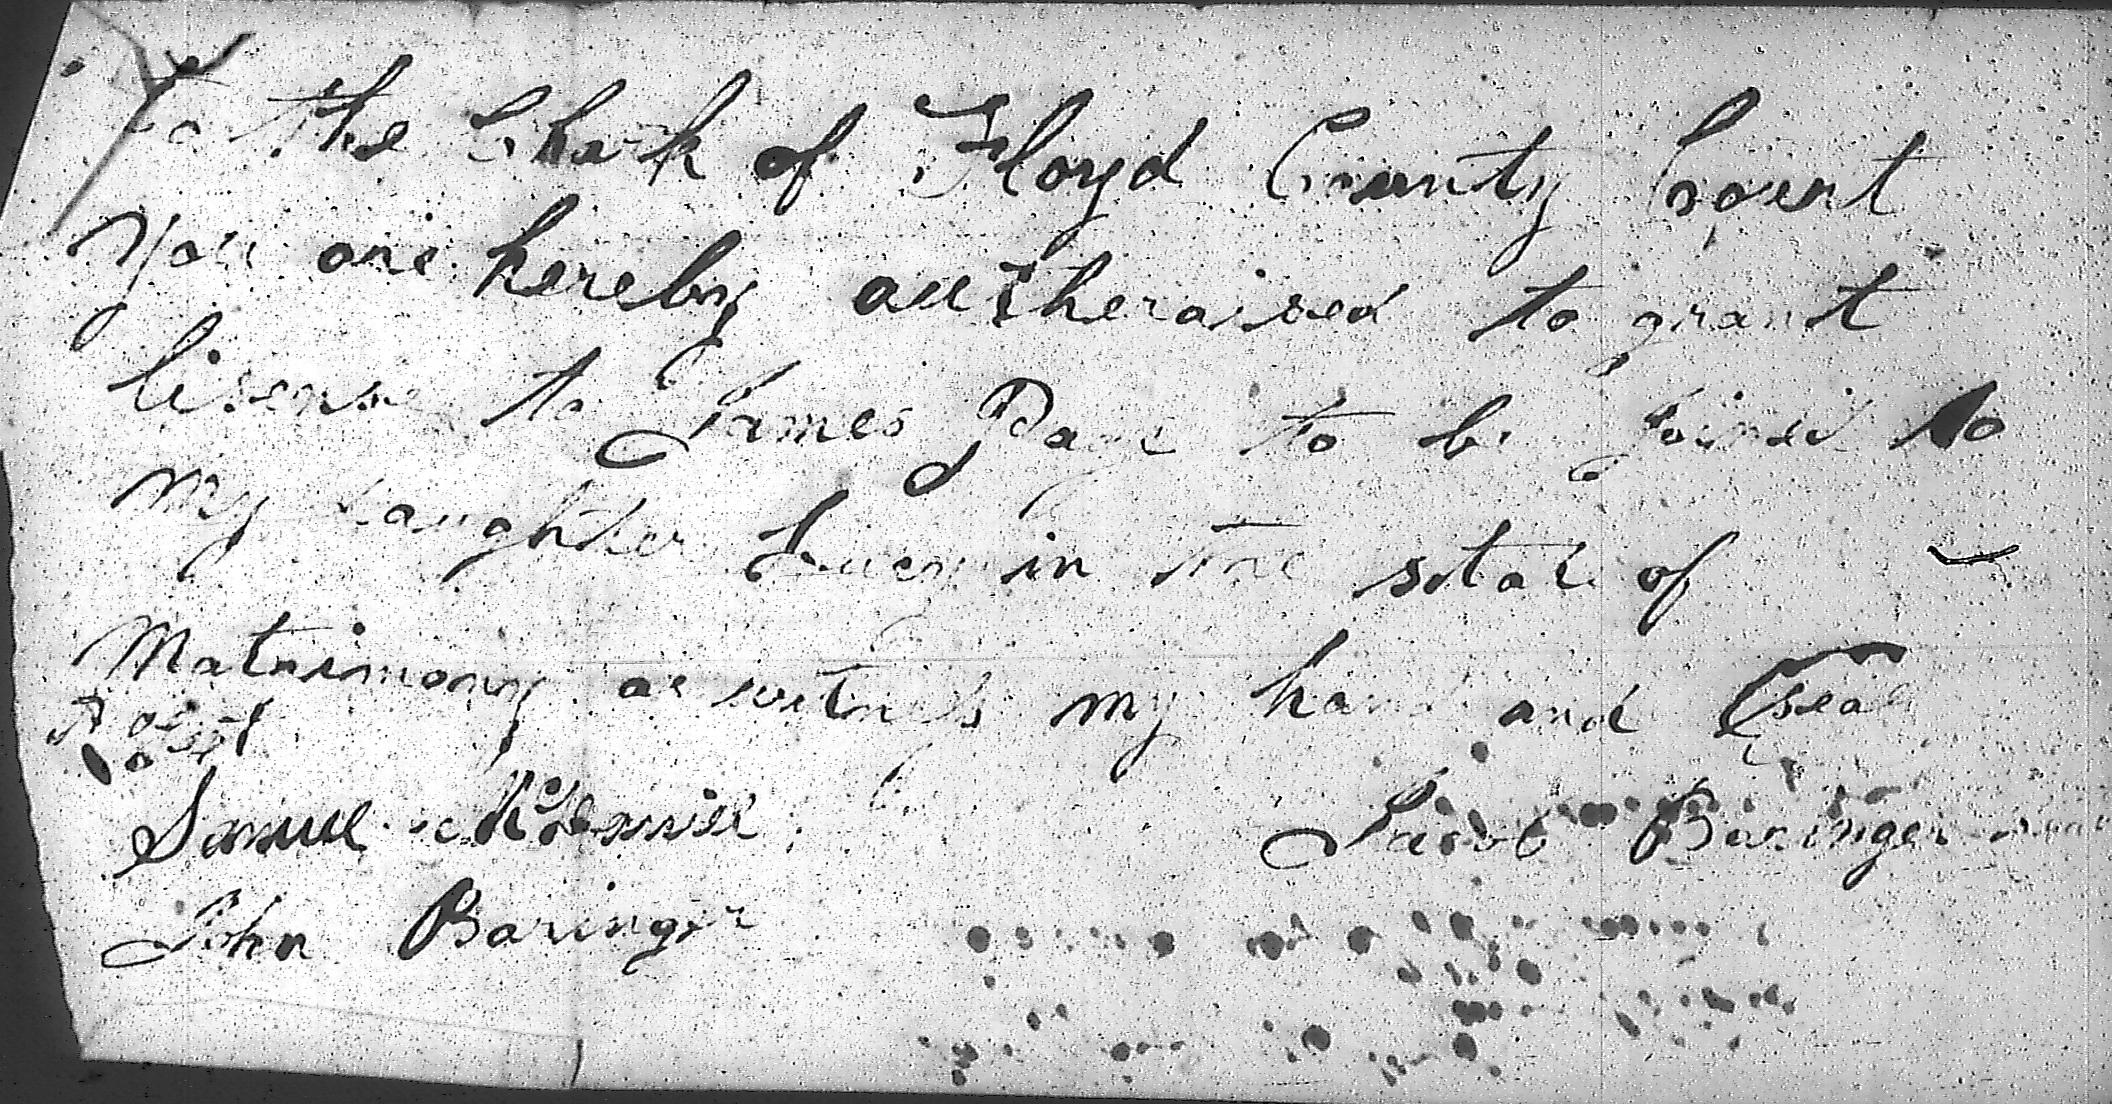 To the Cherk of Floyd County Court
You are hereby autheraised to grant
lisense to James Page to be joined to
my daughter Lucy in the state of
Matrimony as witness my hand and seal
Samuel
Jacob Baringer
John Baringer